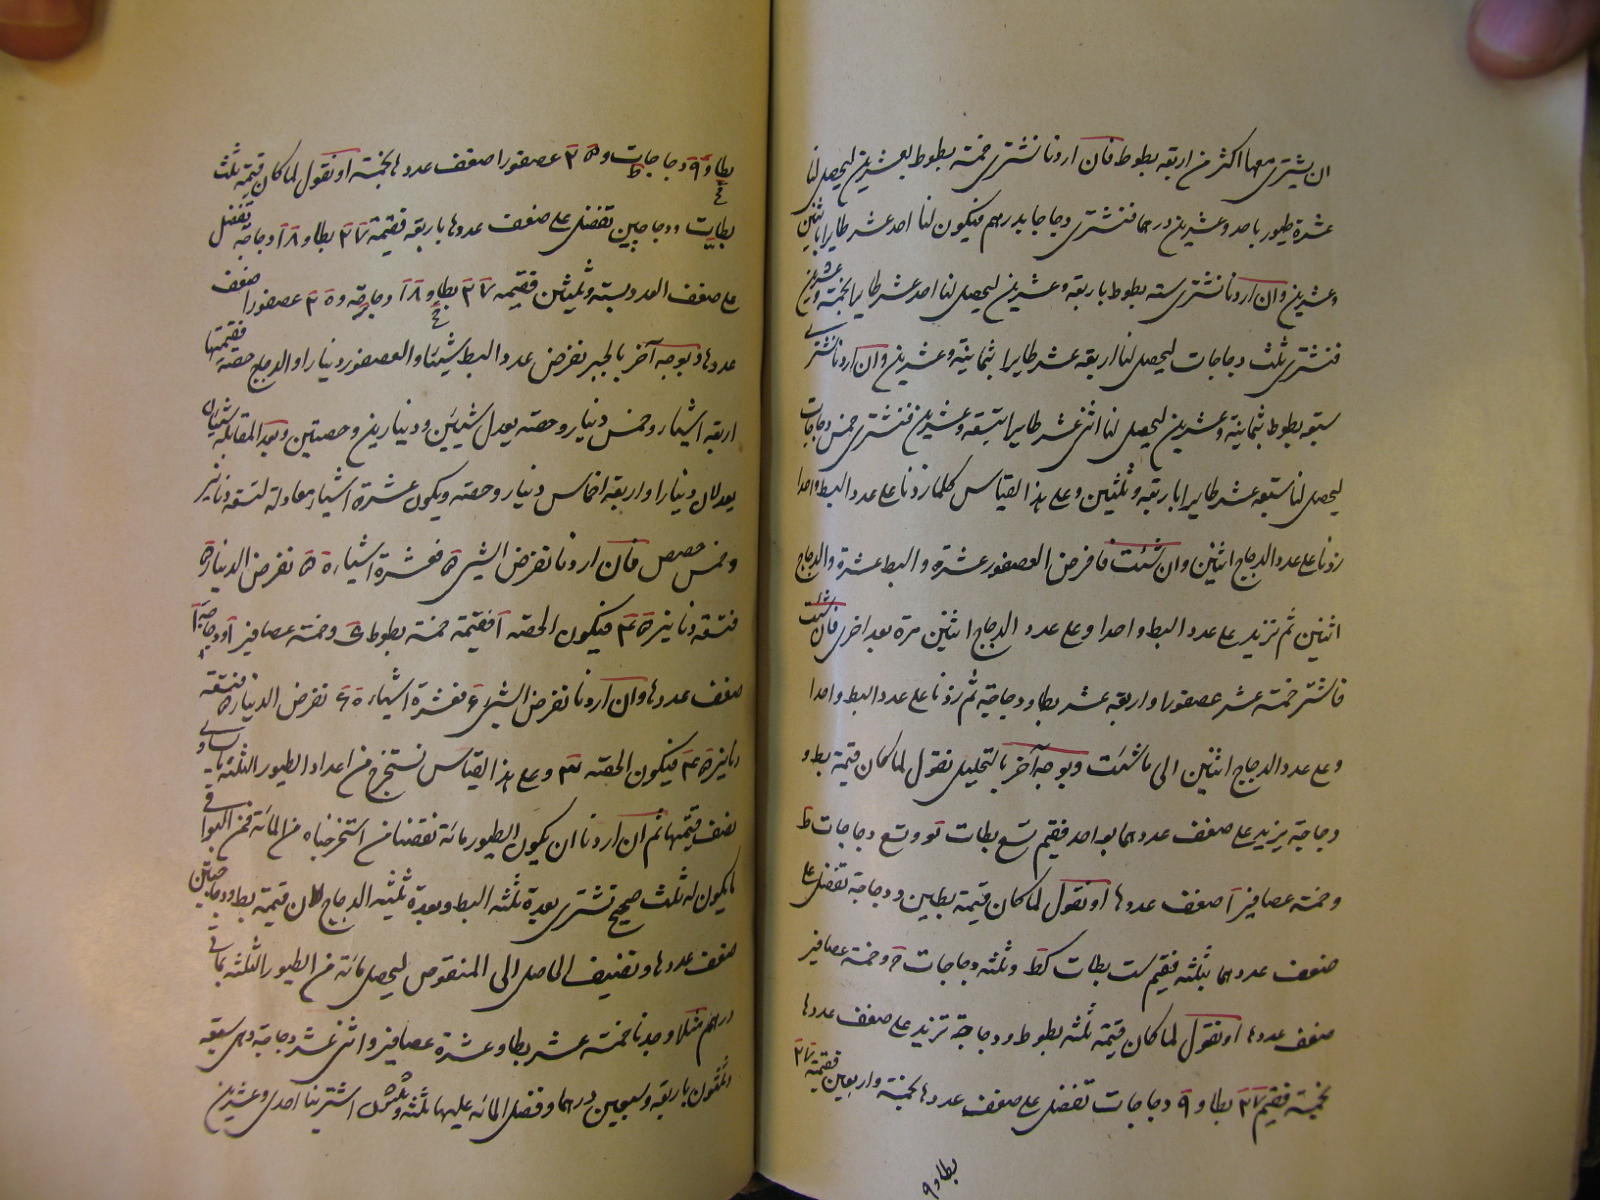 ان يشترى معها اكثر من اربعة بطوط فان اردنا نشترى خمسة بطوط بعشرين ليحصل لنا
عشرة طيور باحد وعشرين درهما فنشترى دجاجا بدرهم فيكون لنا احد عشر طايرا باثنين
وعشرين وان اردنا نشترى ستة بطوط باربعة وعشرين ليحصل لنا احد عشر طايرا بخمسة وعشرين
فنشترى ثلث دجاجات ليحصل لنا اربعة عشر طايرا بثمانية وعشرين وان اردنا نشترى
سبعة بطوط بثمانية وعشرين ليحصل لنا اثنى عشر طايرا بتسعة وعشرين فنشترى خمس دجاجات
ليحصل لنا سبعة عشر طايرا باربعة وثلثين وعلى هذا القياس كلما زدنا على عدد البط واحدا
زدنا على عدد الدجاج اثنين وان شئت فافرض العصفور عشرة والبط عشرة والدجاج
اثنين ثم نزيد على عدد البط واحدا وعلى عدد الدجاج اثنين مرة بعد اخرى فان شئت
فاشتر خمسة عشر عصفورا واربعة عشر بطا ودجاجة ثم زدنا على عدد البط واحدا
وعلى عدد الدجاج اثنين الى ما شئت وبوجه آخر بالتحليل نقول لما كان قيمة بط و
دجاجة يزيد على ضعف عددهما بواحد فقيم تسع بطات وتسع دجاجات
وخمسة عصافير ضعف عددها او نقول لما كان قيمة بطين ودجاجة تفضل على
ضعف عددهما بثلثة فقيم ست بطات وثلثة دجاجات وخمسة عصافير
ضعف عددها او نقول لما كان قيمة ثلثة بطوط ودجاجة تزيد على ضعف عددها
بخمسة فقيم ٢٧ بطا و ٩ دجاجات تفضل على ضعف عددها بخمسة واربعين فقيمة ٢٧
بطا و ٩
بطا و ٩ دجاجات و ٢٥ عصفورا ضعف عددها بخمسة او نقول لما كان قيمة ثلث
بطات ودجاجتين تفضل على ضعف عددها باربعة فقيمة ٢٧ بطا و ١٨ دجاجة تفضل
على ضعف العدد بستة وثلثين فقيمة ٢٧ بطا و ١٨ دجاجة و عصفورا ضعف
عددها وبوجه آخر بالجبر نفرض عدد البط شيئا والعصفور دينارا والدجاج حصة فقيمتها
اربعة اشياء وخمس دينار وحصة يعدل شيئين ودينارين وحصتين وبعد المقابلة شيئان
يعدلان دينارا واربعة اخماس دينار وحصة ويكون عشرة اشياء معادلة لتسعة دنانير
وخمس حصص فان اردنا نفرض الشئ ٥ فعشرة اشياء ٥٠ نفرض الدينار ٥
فتسعة دنانير ٤٥ فيكون الحصة ١ فقيمة خمسة بطوط وخمسة عصافير ودجاجة
ضعف عددها وان اردنا نفرض الشئ ٦ فعشرة اشياء ٦٠ نفرض الدينار ٥ فتسعة
دنانير ٤٥ فيكون الحصة ٣ وعلى هذا القياس نستخرج من اعداد الطيور الثلثة
نصف قيمتها ثم ان اردنا ان يكون الطيور مائة نقصنا من استخرجناه من المائة فمن البواقى
ما يكون له ثلث صحيح نشترى بعدة ثلثه البط وبعدة ثلثيه الدجاج لان قيمة بط ودجاجتين
ضعف عددها ونضيف الحاصل الى المنقوص ليحصل مائة من الطيور الثلثة بمائتى
درهم مثلا وجدنا خمسة عشر بطا وعشرة عصافير واثنى عشر دجاجة وهى سبعة
وثلثون باربعة وسبعين درهما وفضل المائة عليها ثلثة وستون اشترينا احدى وعشرين